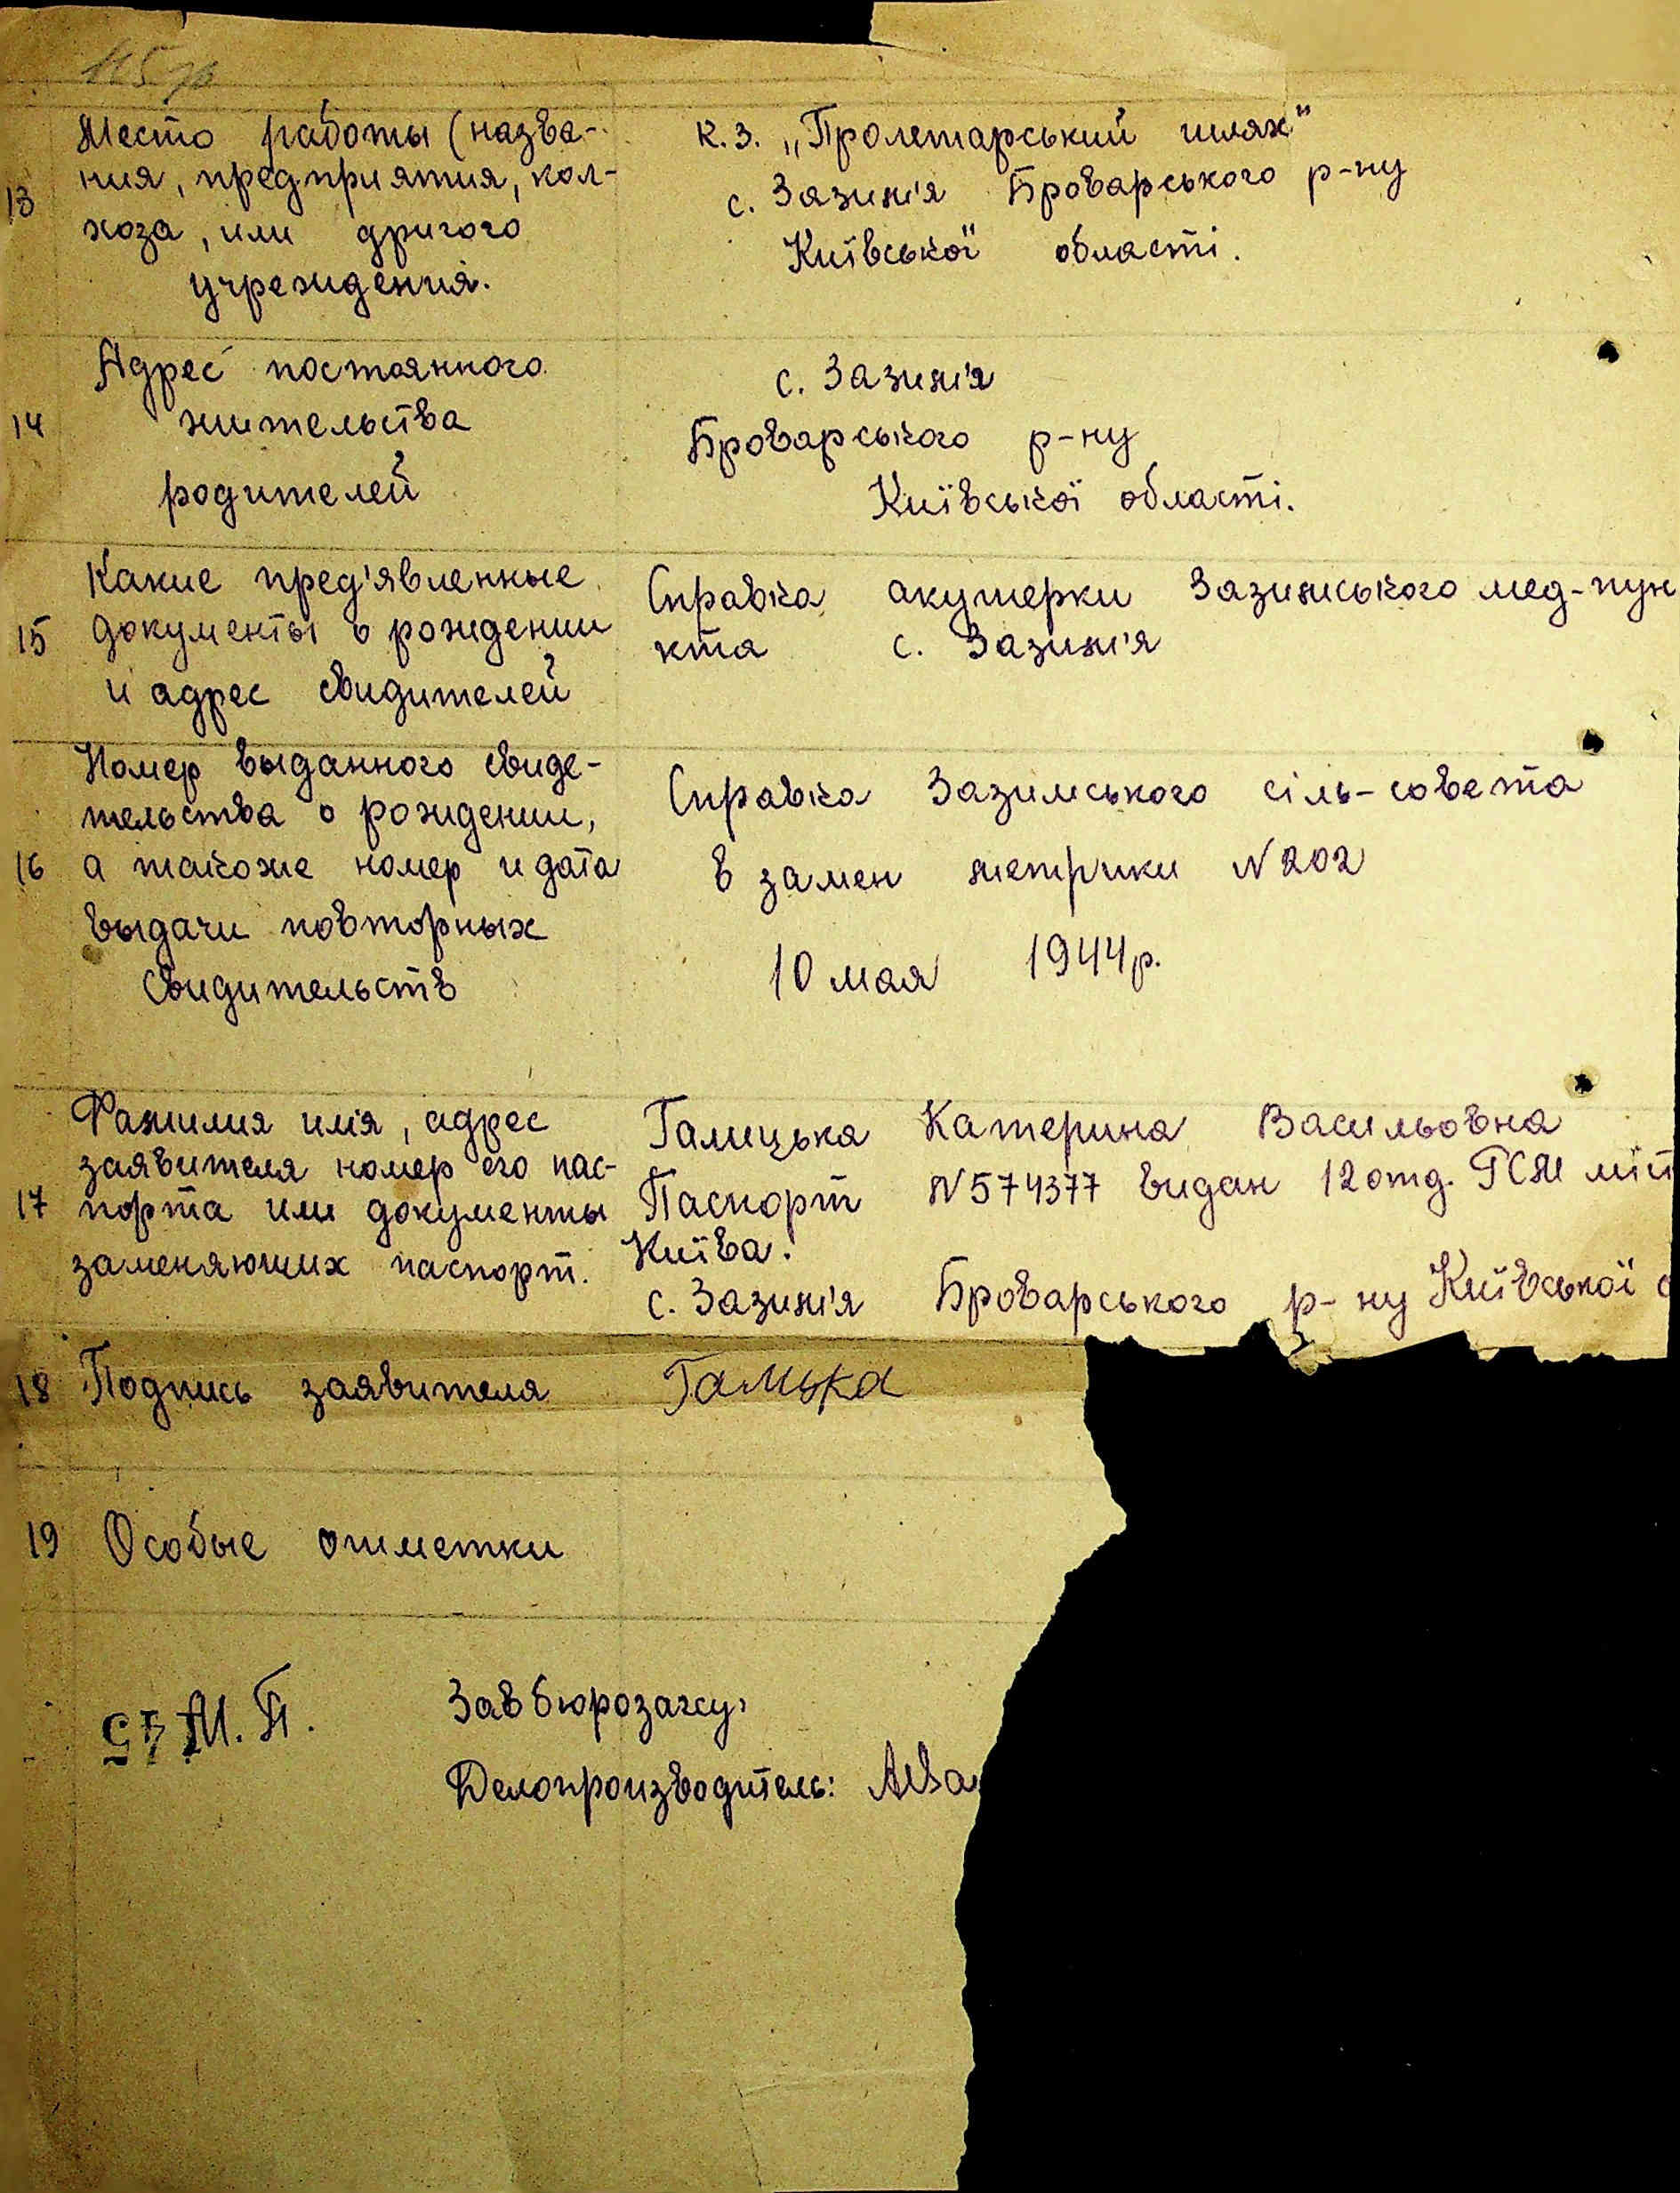 115 зр
Место работы (назва-
ния, предприятия, кол-
13
хоза, или другого
учреждения.
к.з. „Пролетарський шлях"
с. Зазим'я Броварського р-ну
Київської області.
Адрес постоянного
14 жительства
родителей
с. Зазим'я
Броварського р-ну
Київської області.
Какие пред'явленные
15 документы о рождении
и адрес свидителей
Справка акушерки Зазимського мед-пун
кта с. Зазим'я
Номер выданного свиде-
тельства о рождении,
16 а также номер и дата
выдачи повторных
свидительств
Справка Зазимського сіль-совета
в замен метрики N 202
10 мая 1944 р.
Фамилия имя, адрес
заявителя номер его пас-
17 порта или документы
заменяющих паспорт.
Галицька Катерина Васильовна
Паспорт N 574377 видан 12 отд. РСМ міі
Київа.
с. Зазим'я Броварського р-ну Київської о
18 Подпись заявителя Галька
19 Особые отметки
М. П.
45
Зав бюрозагсу:
Делопроизводитель: